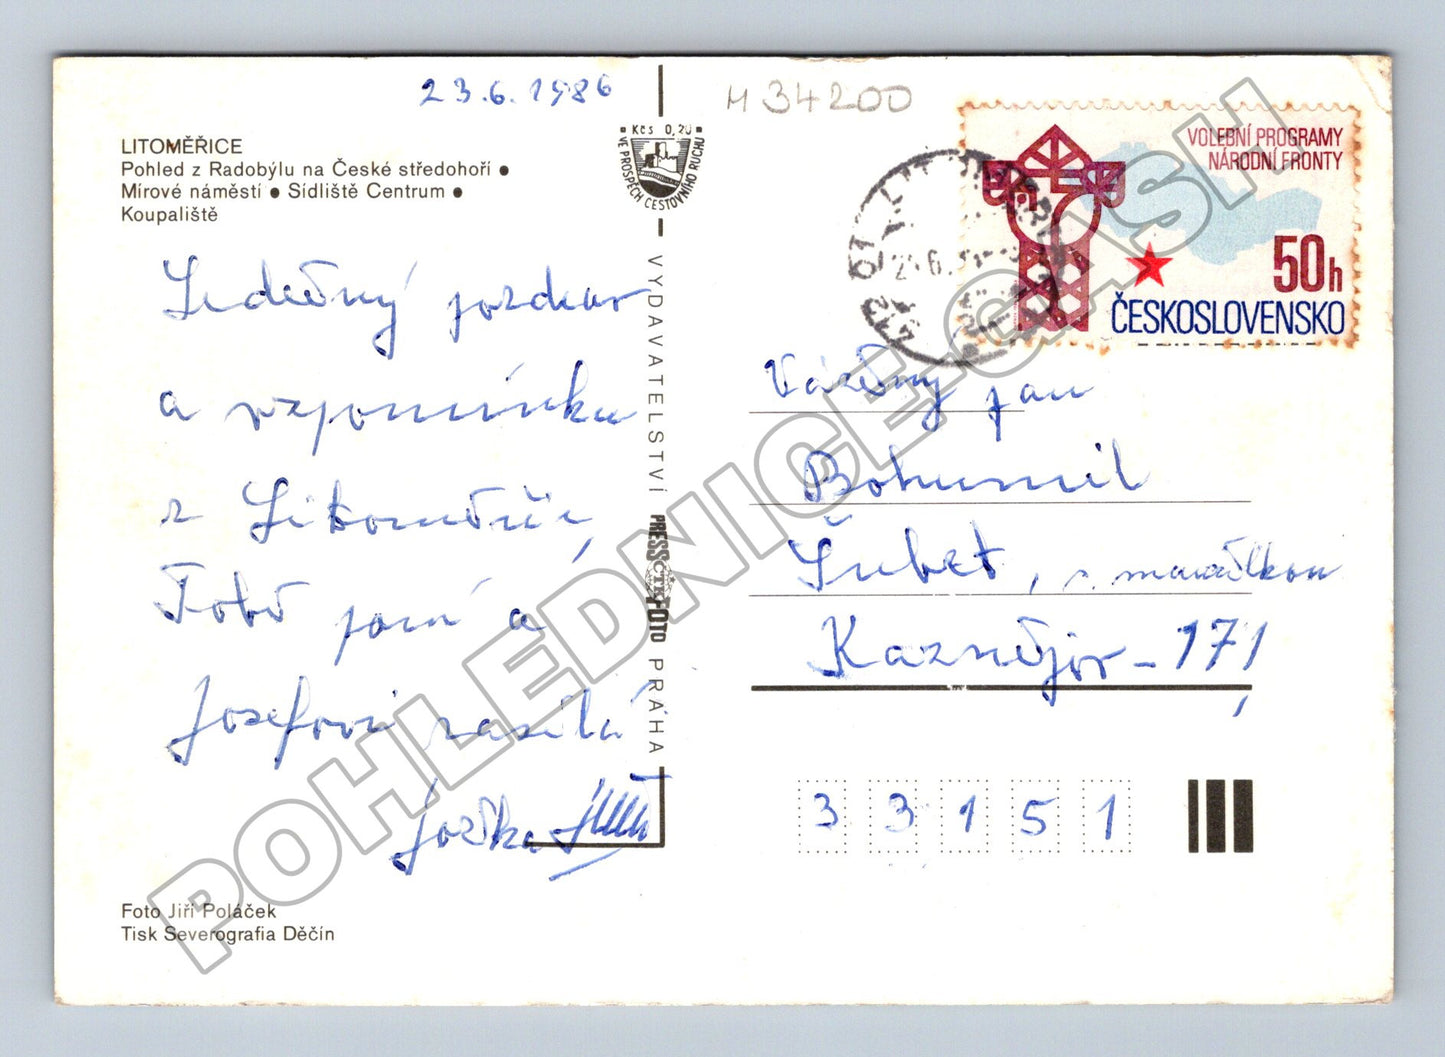 23.6.1986
M 34200
LITOMĚŘICE
Pohled z Radobýlu na České středohoří ●
Mírové náměstí ● Sídliště Centrum ●
Koupaliště
Kčs 0,20
VE PROSPĚCH CESTOVNÍHO RUCHU
Srdečný pozdrav
a vzpomínku
z Litoměřic,
Tobě paní a
Josefovi zasílá
Jožka
Foto Jiří Poláček
Tisk Severografia Děčín
VYDAVATELSTVÍ PRESSFOTO PRAHA
ČTK
VOLEBNÍ PROGRAMY
NÁRODNÍ FRONTY
50h
ČESKOSLOVENSKO
412 01
Vážený pan
Bohumil
Šubet, s manželkou
Kaznějov - 171,
33151
POHLEDNICE-CASH